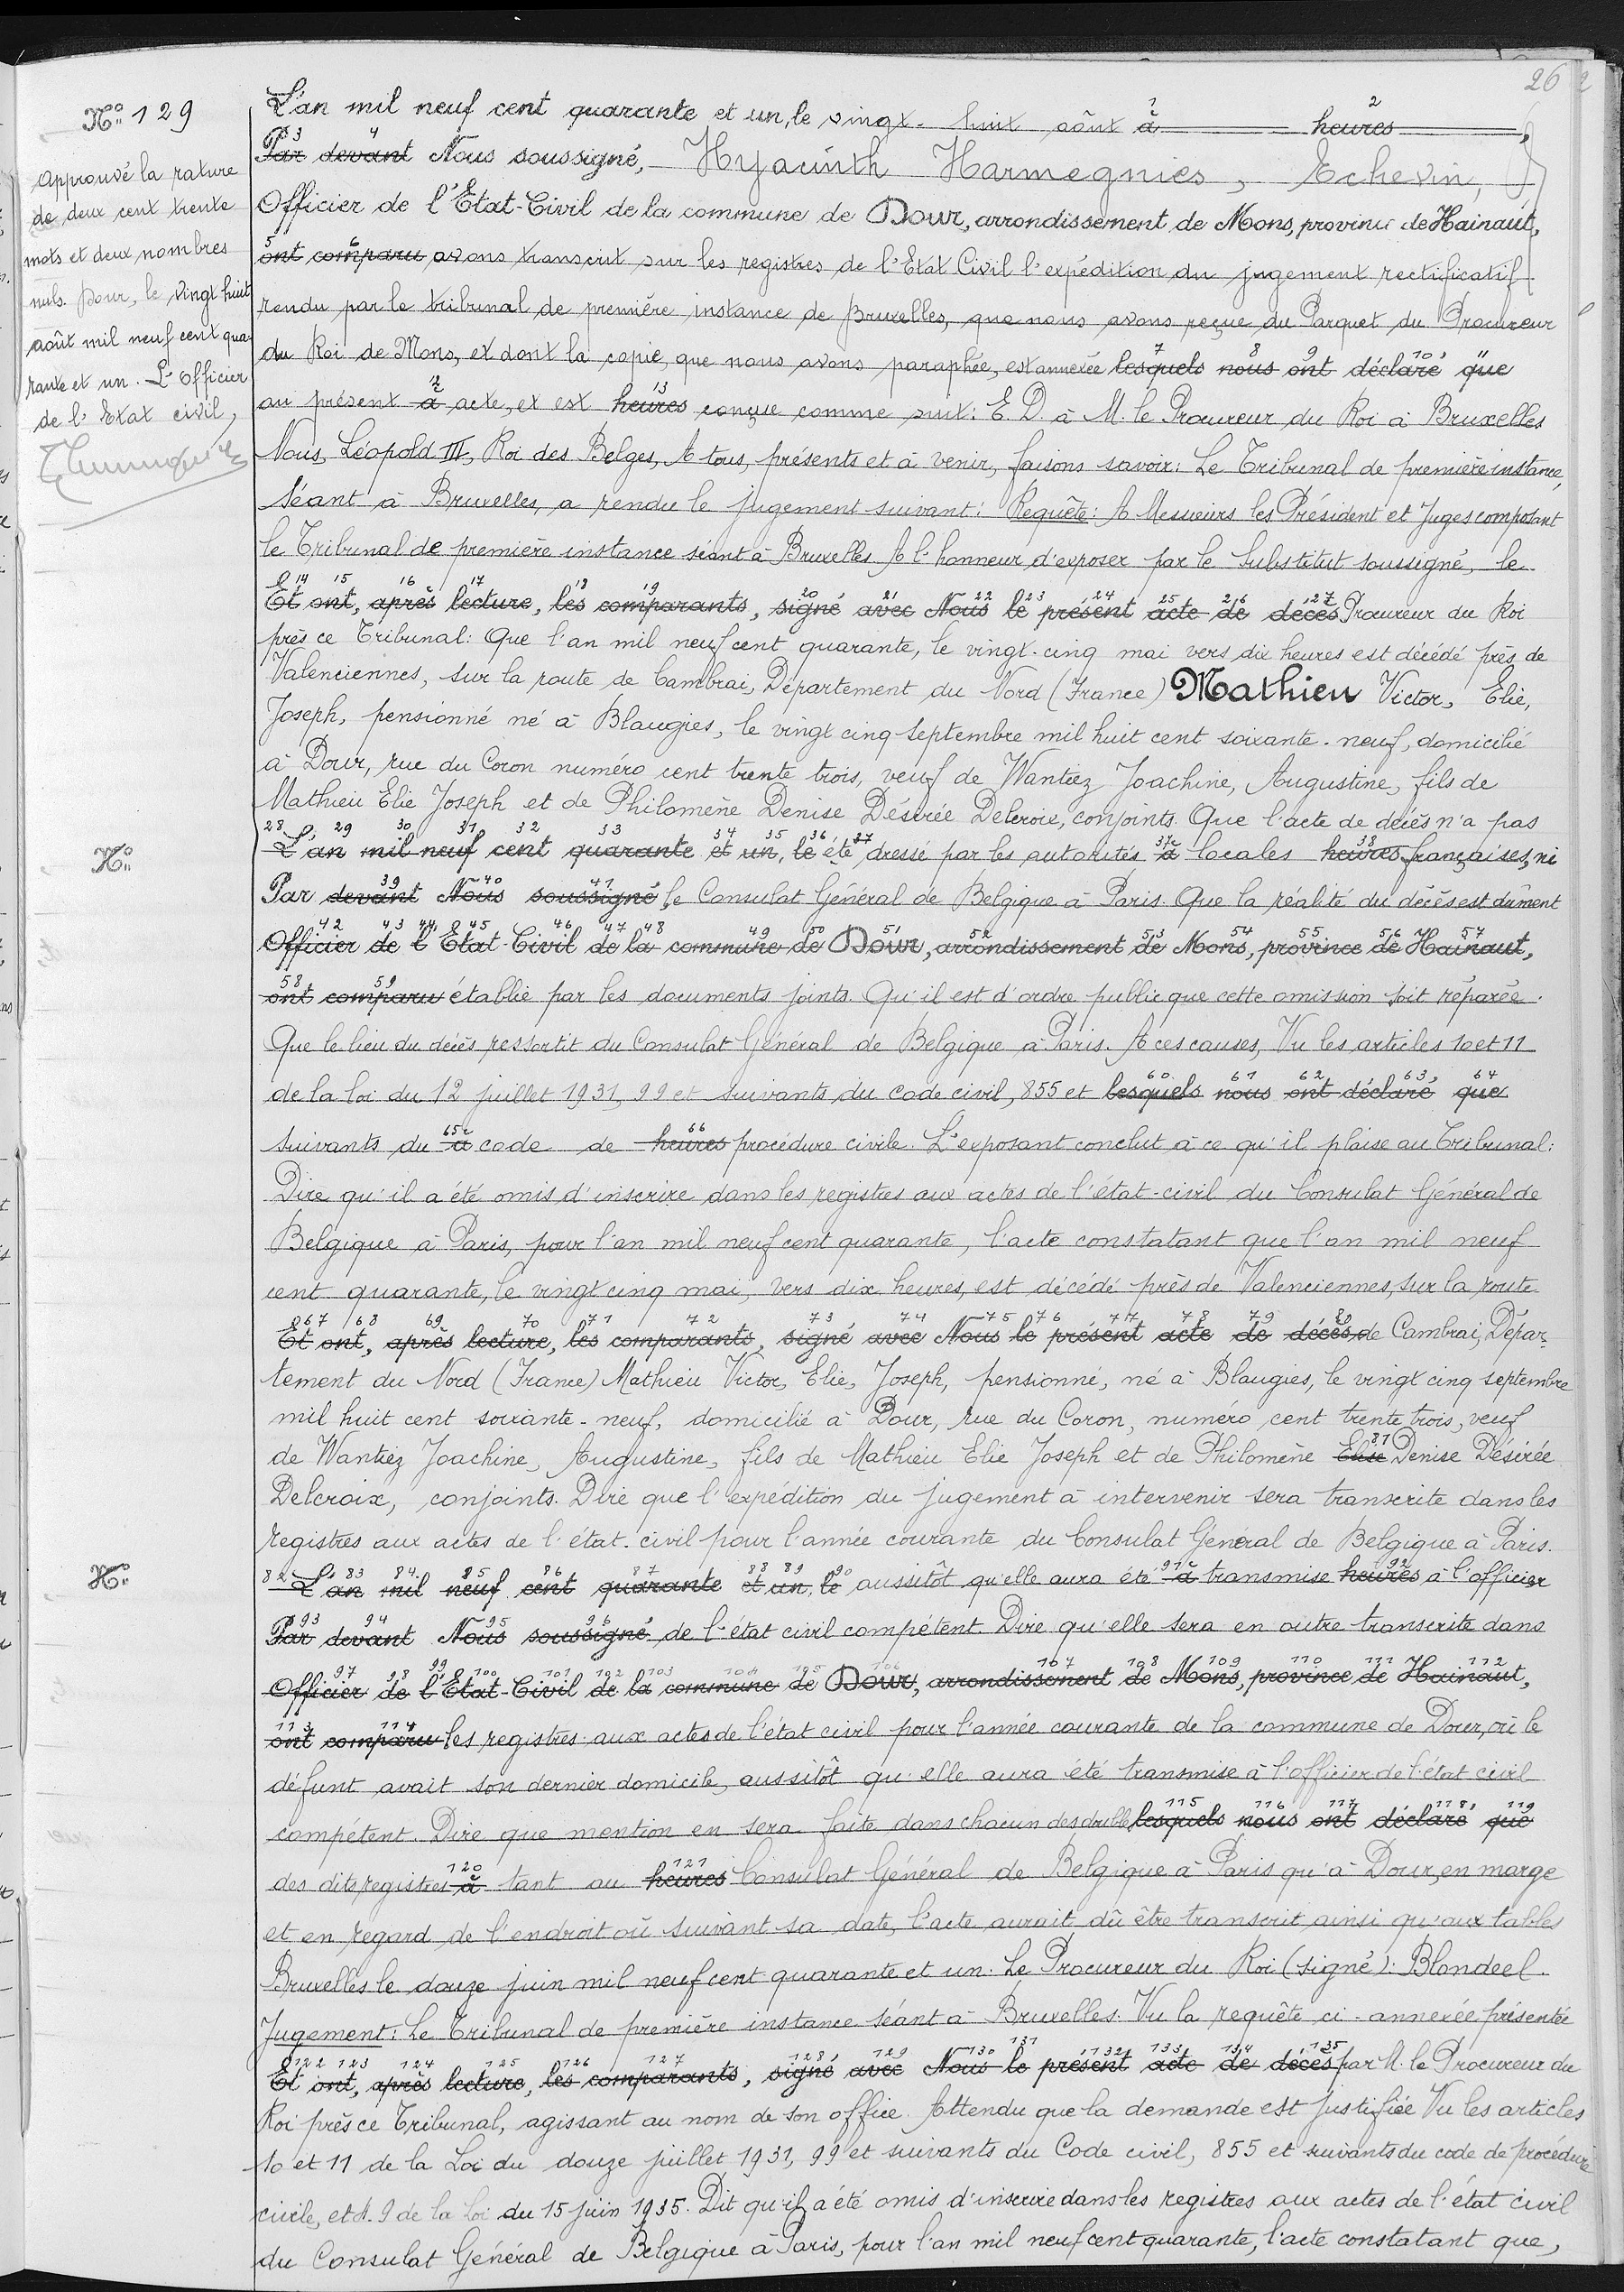 26
Nº 129
Approuvé la rature
de deux cent trente
mots et deux nombres
nuls. Dour, le vingt huit
août mil neuf cent qua-
rante et un. L'Officier
de l'Etat civil,
Nº
Nº
L'an mil neuf cent quarante et un, le vingt-huit août à 1 heures 2,
Par 3 devant 4 Nous soussigné, Hyacinth Harmegnies, Echevin,
Officier de l'Etat-Civil de la commune de Dour, arrondissement de Mons, province de Hainaut,
ont 5 comparu 6 avons transcrit sur les registres de l'Etat Civil l'expédition du jugement rectificatif
rendu par le tribunal de première instance de Bruxelles, que nous avons reçue du Parquet du Procureur
du Roi de Mons, et dont la copie, que nous avons paraphée, est annexée lesquels 7 nous 8 ont 9 déclaré 10 que 11
au présent à 12 acte, et est heures 13 conçue comme suit: E. D. à M. le Procureur du Roi à Bruxelles
Nous, Léopold III, Roi des Belges, A tous, présents et à venir, faisons savoir: Le Tribunal de première instance,
Séant à Bruxelles, a rendu le jugement suivant: Requête: A Messieurs les Président et Juges composant
le Tribunal de première instance séant à Bruxelles. A l'honneur d'exposer par le Substitut soussigné, le
Et 14 ont 15, après 16 lecture 17, les 18 comparants 19, signé 20 avec 21 Nous 22 le 23 présent 24 acte 25 de 26 décès 27 Procureur du Roi
près ce Tribunal: Que l'an mil neuf cent quarante, le vingt-cinq mai vers dix heures est décédé près de
Valenciennes, sur la route de Cambrai, Département du Nord (France) Mathieu Victor, Elie,
Joseph, pensionné né à Blaugies, le vingt cinq septembre mil huit cent soixante-neuf, domicilié
à Dour, rue du Coron numéro cent trente trois, veuf de Wantiez Joachine, Augustine, fils de
Mathieu Elie Joseph et de Philomène Denise Désirée Delcroix, conjoints. Que l'acte de décès n'a pas
28 L'an 29 mil 30 neuf 31 cent 32 quarante 33 et 34 un 35, le 36 été 37 dressé par les autorités à 37 locales heures 38 françaises, ni
Par devant 39 Nous 40 soussigné 41 le Consulat Général de Belgique à Paris. Que la réalité du décès est dûment
Officier 42 de 43 l' 44 Etat 45-Civil 46 de 47 la 48 commune 49 de 50 Dour 51, arrondissement 52 de 53 Mons 54, province 55 de 56 Hainaut 57,
ont 58 comparu 59 établie par les documents joints. Qu'il est d'ordre public que cette omission soit réparée.
Que le lieu du décès ressortit du Consulat Général de Belgique à Paris. A ces causes, Vu les articles 10 et 11
de la loi du 12 juillet 1931, 99 et suivants du code civil, 855 et lesquels 60 nous 61 ont 62 déclaré 63 que 64
suivants du à 65 code de heures 66 procédure civile. L'exposant conclut à ce qu'il plaise au Tribunal:
Dire qu'il a été omis d'inscrire dans les registres aux actes de l'état-civil du Consulat Général de
Belgique à Paris, pour l'an mil neuf cent quarante, l'acte constatant que l'an mil neuf
cent quarante, le vingt cinq mai, vers dix heures, est décédé près de Valenciennes, sur la route
Et 67 ont 68, après 69 lecture 70, les 71 comparants 72, signé 73 avec 74 Nous 75 le 76 présent 77 acte 78 de 79 décès 80 de Cambrai, Dépar-
tement du Nord (France) Mathieu Victor, Elie, Joseph, pensionné, né à Blaugies, le vingt cinq septembre
mil huit cent soixante-neuf, domicilié à Dour, rue du Coron, numéro cent trente trois, veuf
de Wantiez Joachine, Augustine, fils de Mathieu Elie Joseph et de Philomène Elise 81 Denise Désirée
Delcroix, conjoints. Dire que l'expédition du jugement à intervenir sera transcrite dans les
registres aux actes de l'état-civil pour l'année courante du Consulat Général de Belgique à Paris.
82 L'an 83 mil 84 neuf 85 cent 86 quarante 87 et 88 un 89, le 90 aussitôt qu'elle aura été à 91 transmise heures 92 à l'officier
Par 93 devant 94 Nous 95 soussigné 96 de l'état civil compétent. Dire qu'elle sera en outre transcrite dans
Officier 97 de 98 l' 99 Etat 100-Civil 101 de 102 la 103 commune 104 de 105 Dour 106, arrondissement 107 de 108 Mons 109, province 110 de 111 Hainaut 112,
ont 113 comparu 114 les registres aux actes de l'état civil pour l'année courante de la commune de Dour, où le
défunt avait son dernier domicile, aussitôt qu'elle aura été transmise à l'officier de l'état civil
compétent. Dire que mention en sera faite dans chacun des doubles lesquels 115 nous 116 ont 117 déclaré 118 que 119
des dits registres à 120 tant au heures 121 Consulat Général de Belgique à Paris qu'à Dour, en marge
et en regard de l'endroit où suivant sa date, l'acte aurait dû être transcrit ainsi qu'aux tables
Bruxelles le douze juin mil neuf cent quarante et un. Le Procureur du Roi (signé): Blondeel.
Jugement: Le Tribunal de première instance séant à Bruxelles. Vu la requête ci-annexée présentée
Et 122 ont 123, après 124 lecture 125, les 126 comparants 127, signé 128 avec 129 Nous 130 le 131 présent 132 acte 133 de 134 décès 135 par M. le Procureur du
Roi près ce Tribunal, agissant au nom de son office. Attendu que la demande est justifiée Vu les articles
10 et 11 de la Loi du douze juillet 1931, 99 et suivants du Code civil, 855 et suivants du code de procédure
civile, et A. 9 de la loi du 15 Juin 1935. Dit qu'il a été omis d'inscrire dans les registres aux actes de l'état civil
du Consulat Général de Belgique à Paris, pour l'an mil neuf cent quarante, l'acte constatant que,